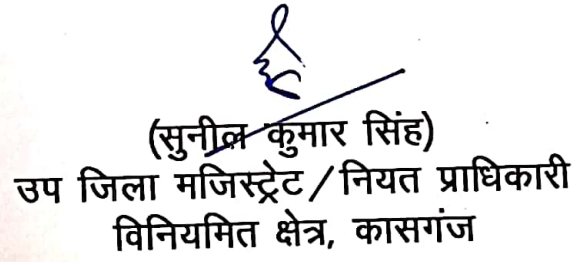 (सुनील कुमार सिंह)
उप जिला मजिस्ट्रेट/नियत प्राधिकारी
विनियमित क्षेत्र, कासगंज